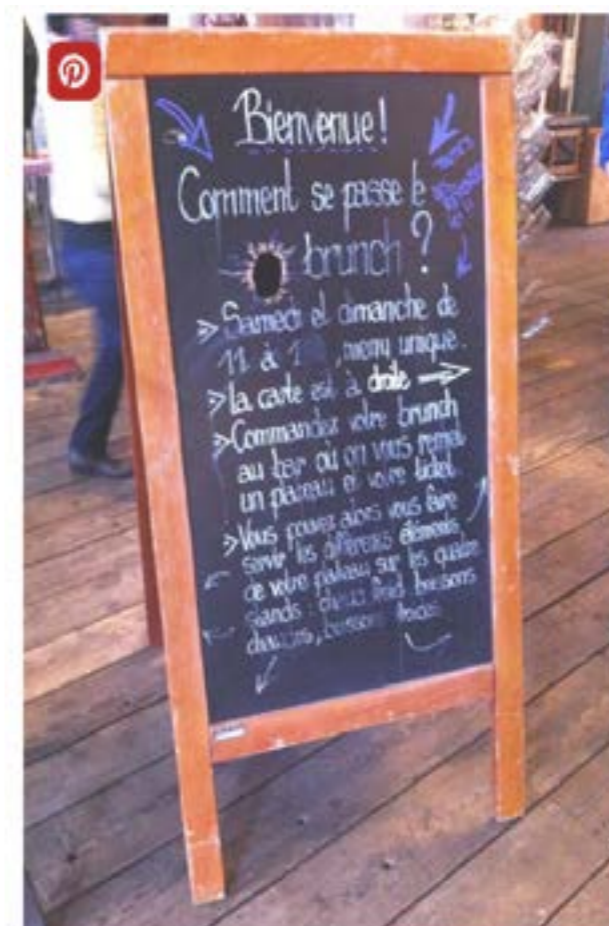 Bienvenue!
Comment se passe le
brunch ?
» Samedi et dimanche de
11 à 1 , menu unique.
» La carte est à droite →
» Commandez votre brunch
au bar où on vous remet
un plateau et votre ticket.
» Vous pouvez alors vous faire
servir les différents éléments
de votre plateau sur les quatre
stands : chaud, froid, boissons
chaudes, boissons froides